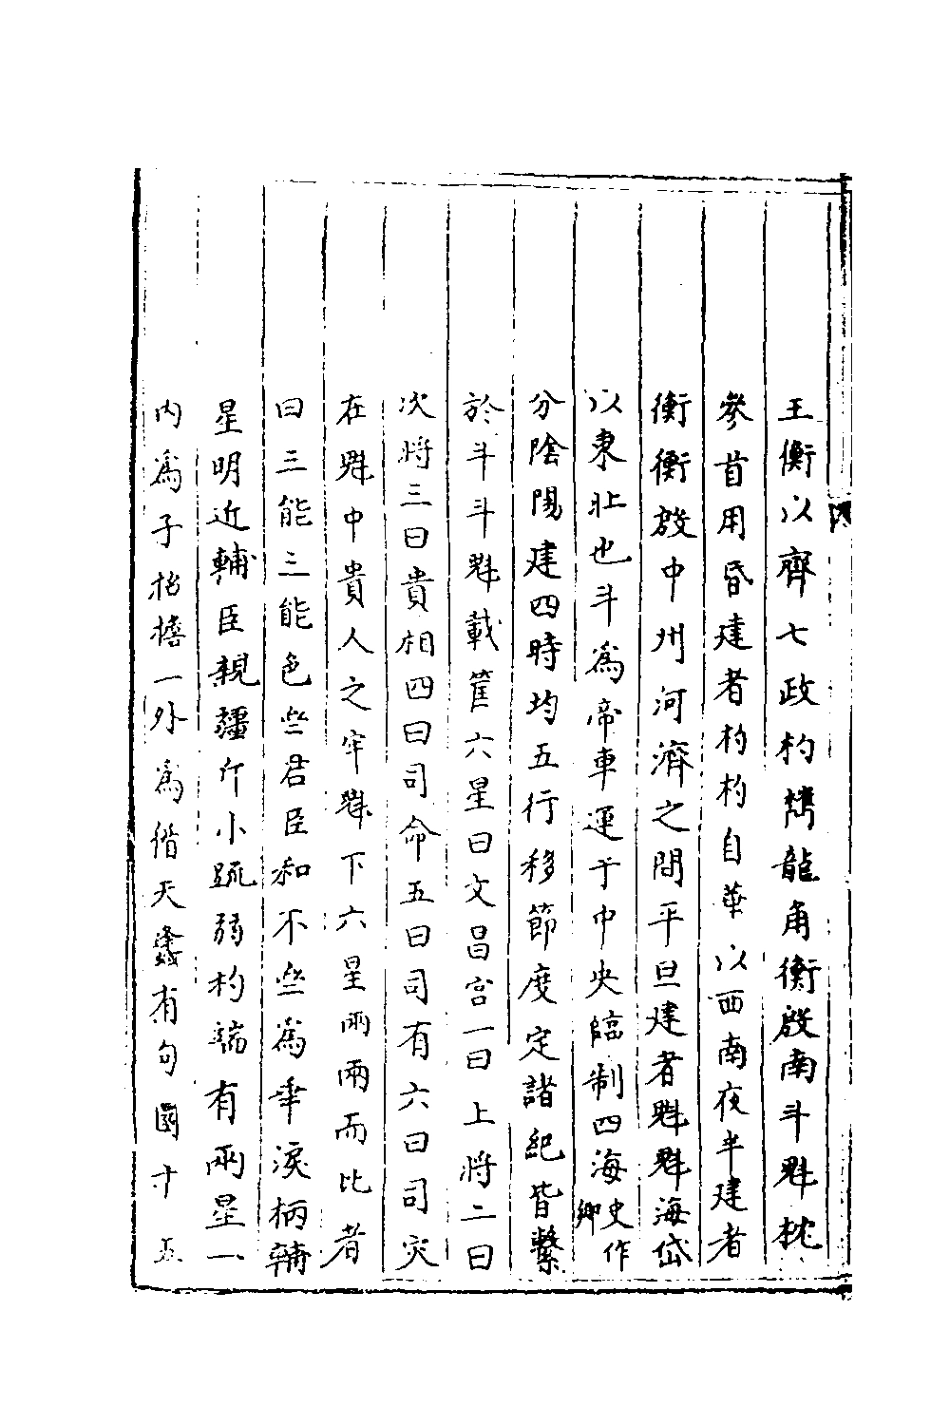 王衡以齊七政杓攜龍角衡殷南斗魁枕
參首用昏建者杓杓自華以西南夜半建者
衡衡殷中州河濟之間平旦建者魁魁海岱
以東北也斗爲帝車運于中央臨制四海史作卿
分陰陽建四時均五行移節度定諸紀皆繫
於斗斗魁載筐六星曰文昌宫一曰上將二曰
次將三曰貴相四曰司命五曰司有六曰司灾
在魁中貴人之牢魁下六星兩兩而比者
曰三能三能色些君臣和不些爲乖淚柄輔
星明近輔臣親彊斥小踈弱杓端有兩星一
内爲子招搖一外爲偕天蠭有句圜十五